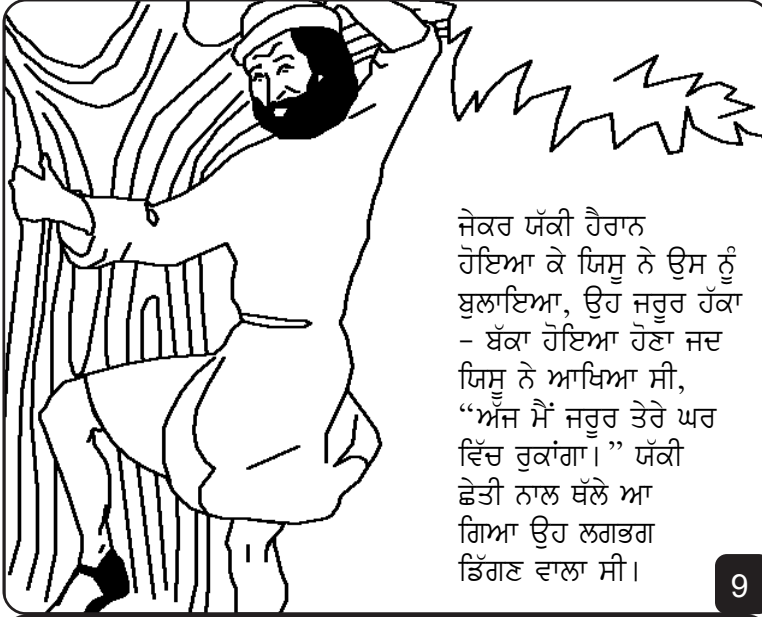 ਜੇਕਰ ਯੱਕੀ ਹੈਰਾਨ
ਹੋਇਆ ਕੇ ਯਿਸੂ ਨੇ ਉਸ ਨੂੰ
ਬੁਲਾਇਆ, ਉਹ ਜਰੂਰ ਹੱਕਾ
- ਬੱਕਾ ਹੋਇਆ ਹੋਣਾ ਜਦ
ਯਿਸੂ ਨੇ ਆਖਿਆ ਸੀ,
“ਅੱਜ ਮੈਂ ਜਰੂਰ ਤੇਰੇ ਘਰ
ਵਿੱਚ ਰੁਕਾਂਗਾ।” ਯੱਕੀ
ਛੇਤੀ ਨਾਲ ਥੱਲੇ ਆ
ਗਿਆ ਉਹ ਲਗਭਗ
ਡਿੱਗਣ ਵਾਲਾ ਸੀ।
9